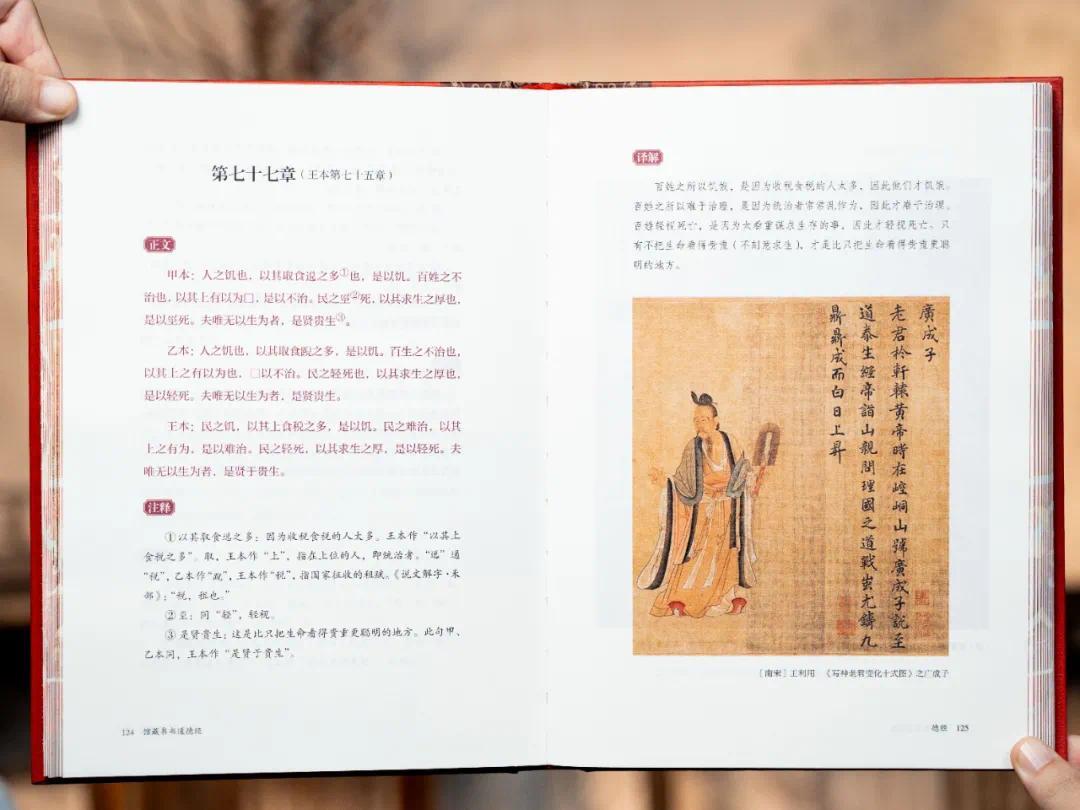 第七十七章（王本第七十五章）
正文
甲本：人之饥也，以其取食逃之多①也，是以饥。百姓之不
治也，以其上有以为□，是以不治。民之巠②死，以其求生之厚也，
是以巠死。夫唯无以生为者，是贤贵生③。
乙本：人之饥也，以其取食䞌之多，是以饥。百生之不治也，
以其上之有以为也，□以不治。民之轻死也，以其求生之厚也，
是以轻死。夫唯无以生为者，是贤贵生。
王本：民之饥，以其上食税之多，是以饥。民之难治，以其
上之有为，是以难治。民之轻死，以其求生之厚，是以轻死。夫
唯无以生为者，是贤于贵生。
注释
①以其取食逃之多：因为收税食税的人太多。王本作“以其上
食税之多”。取，王本作“上”，指在上位的人，即统治者。“逃”通
“税”，乙本作“䞌”，王本作“税”，指国家征收的租赋。《说文解字·禾
部》：“税，租也。”
②巠：同“轻”，轻视。
③是贤贵生：这是比只把生命看得贵重更聪明的地方。此句甲、
乙本同，王本作“是贤于贵生”。
124 馆藏帛书道德经
译解
百姓之所以饥饿，是因为收税食税的人太多，因此他们才饥饿。
百姓之所以难于治理，是因为统治者常常乱作为，因此才难于治理。
百姓轻视死亡，是因为太看重谋求生存的事，因此才轻视死亡。只
有不把生命看得贵重（不刻意求生），才是比只把生命看得贵重更聪
明的地方。
廣成子
老君於軒轅黄帝時在崆峒山號廣成子説至
道泰生經帝詣山親問理國之道戰蚩尤鑄九
鼎鼎成而白日上昇
［南宋］王利用 《写神老君变化十式图》之广成子
德经 125